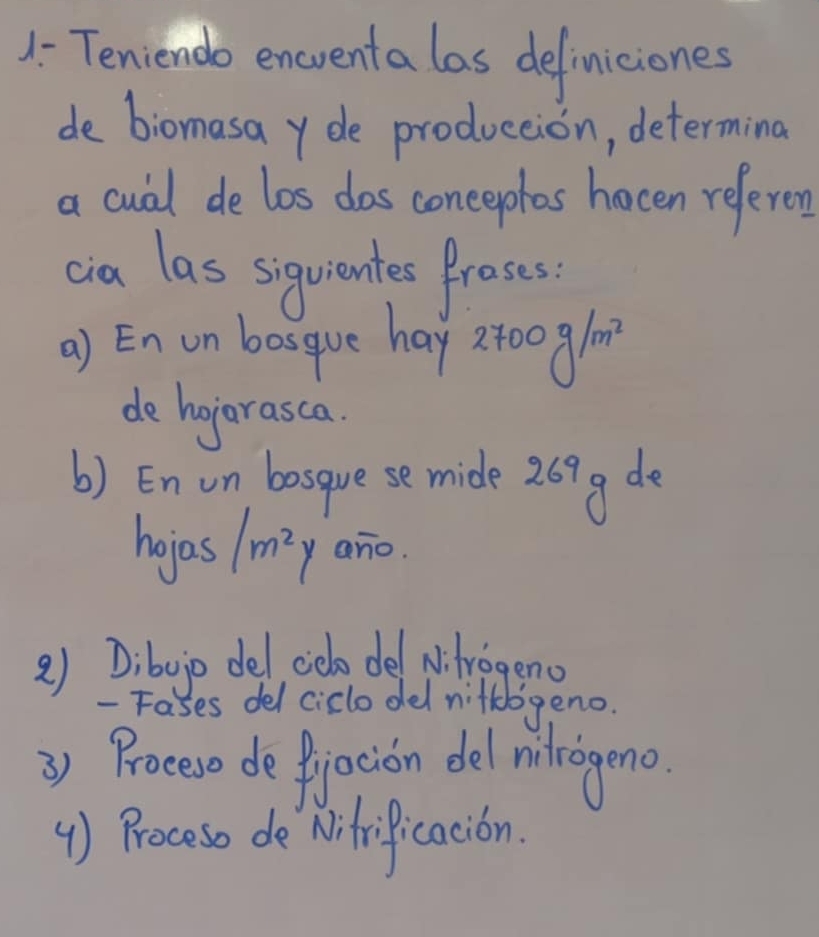 1.- Teniendo encuenta las definiciones
de biomasa y de producción, determina
a cuál de los dos conceptos hacen referen
cia las siguientes frases:
a) En un bosque hay 2700 g/m²
de hojarasca.
b) En un bosque se mide 269 g de
hojas /m² y año.
2) Dibujo del ciclo del Nitrógeno
- Fases del ciclo del nitrógeno.
3) Proceso de fijación del nitrógeno.
4) Proceso de Nitrificación.